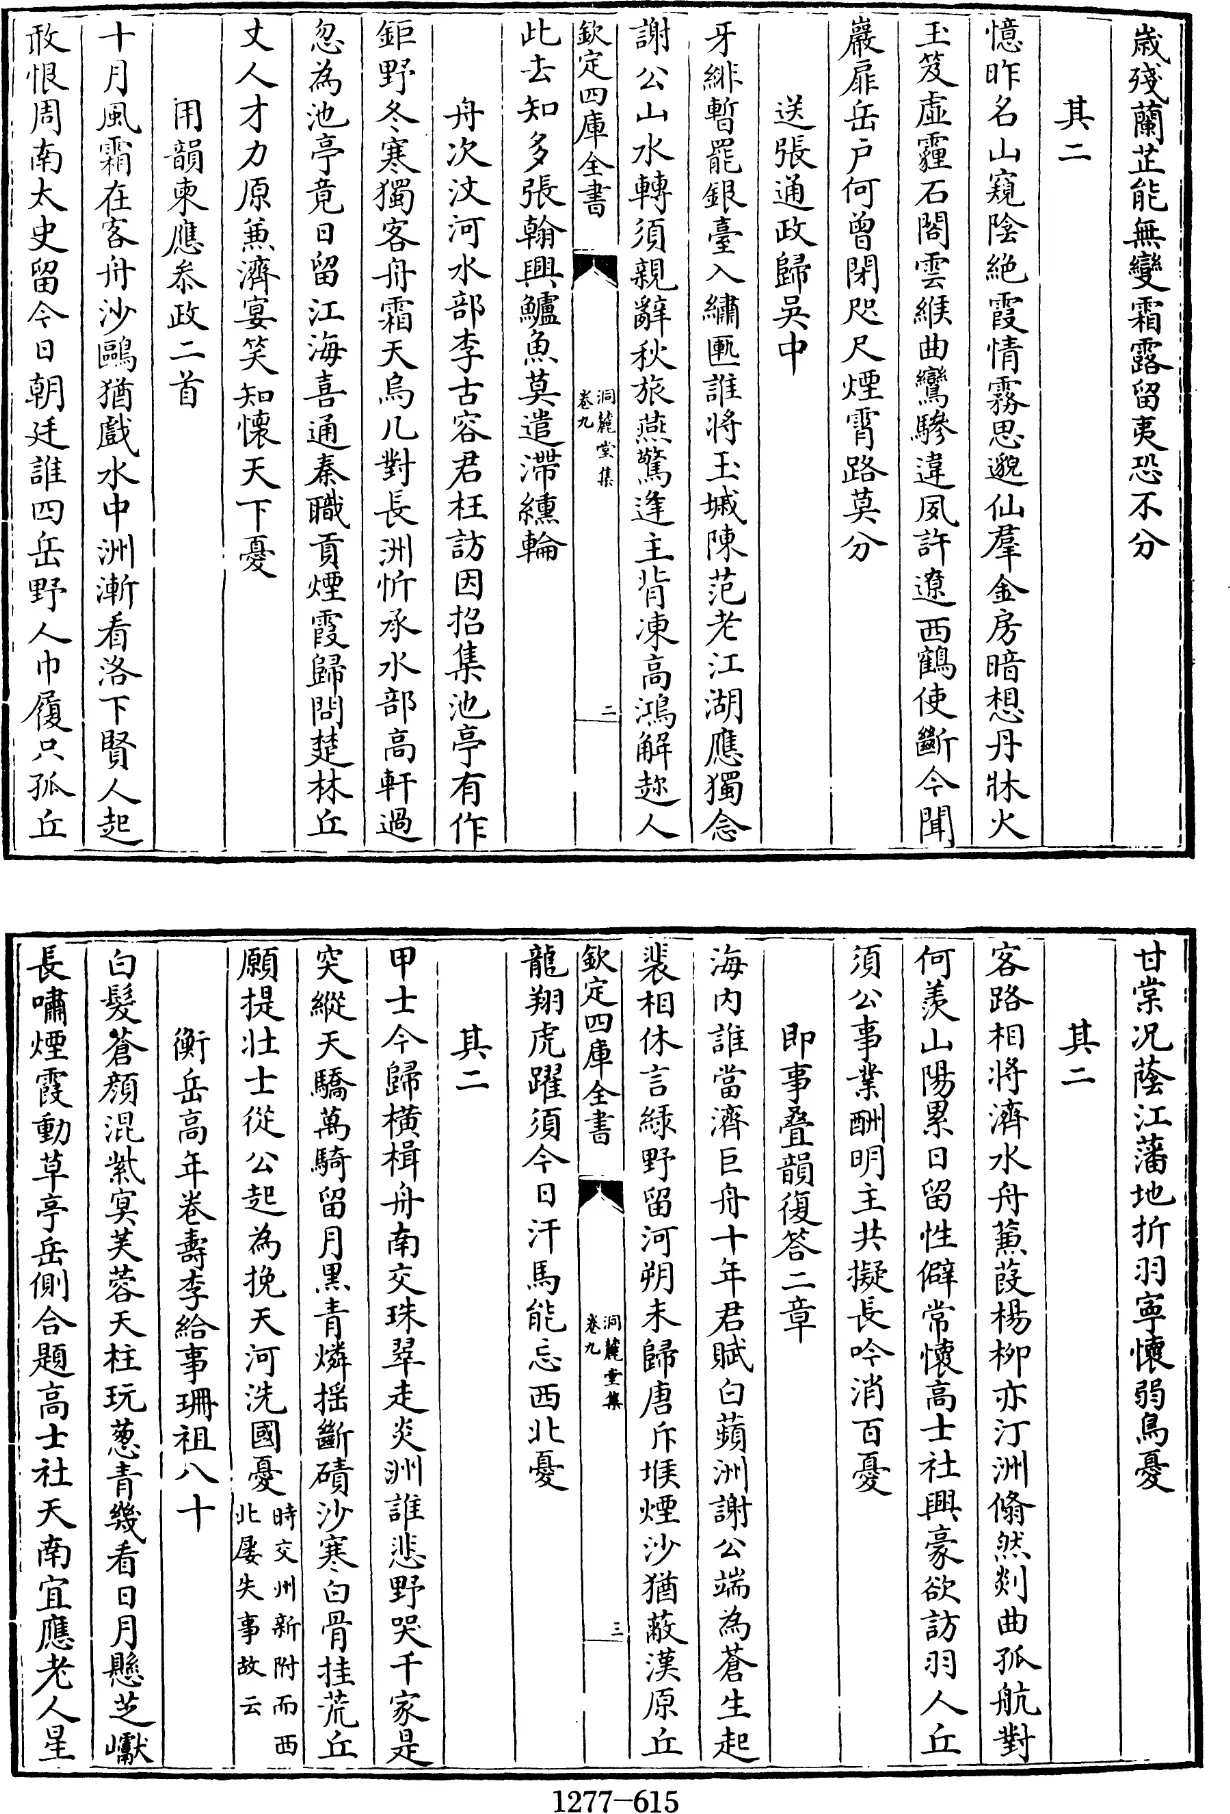 歲殘蘭芷能無變霜露留夷恐不分
其二
憶昨名山窺陰絶霞情霧思邈仙羣金房暗想丹牀火
玉笈虛霾石閣雲緱曲鸞驂違夙許遼西鶴使斷今聞
巖扉岳户何曾閉咫尺煙霄路莫分
送張通政歸吳中
牙緋暫罷銀臺入繡匭誰將玉堿陳范老江湖應獨念
謝公山水轉須親辭秋旅燕驚逢主背凍高鴻解趂人
欽定四庫全書
洞麓堂集
卷九
二
此去知多張翰興鱸魚莫遣滯纁輪
舟次汶河水部李古容君枉訪因招集池亭有作
鉅野冬寒獨客舟霜天烏几對長洲忻承水部高軒過
忽為池亭竟日留江海喜通秦職貢煙霞歸問楚林丘
丈人才力原兼濟宴笑知懷天下憂
用韻柬應叅政二首
十月風霜在客舟沙鷗猶戲水中洲漸看洛下賢人起
敢恨周南太史留今日朝廷誰四岳野人巾履只孤丘
甘棠况蔭江藩地折羽寧懷弱鳥憂
其二
客路相將濟水舟蒹葭楊柳亦汀洲翛然剡曲孤航對
何羨山陽累日留性僻常懷高士社興豪欲訪羽人丘
須公事業酬明主共擬長吟消百憂
即事叠韻復答二章
海内誰當濟巨舟十年君賦白蘋洲謝公端為蒼生起
裴相休言緑野留河朔未歸唐斥堠煙沙猶蔽漢原丘
欽定四庫全書
洞麓堂集
卷九
三
龍翔虎躍須今日汗馬能忘西北憂
其二
甲士今歸横楫舟南交珠翠走炎洲誰悲野哭千家是
突縱天驕萬騎留月黒青燐揺斷磧沙寒白骨挂荒丘
願提壯士從公起為挽天河洗國憂時交州新附而西
北屢失事故云
衡岳高年卷壽李給事珊祖八十
白髮蒼顔混紫冥芙蓉天柱玩葱青幾看日月懸芝巘
長嘯煙霞動草亭岳側合題高士社天南宜應老人星
1277-615